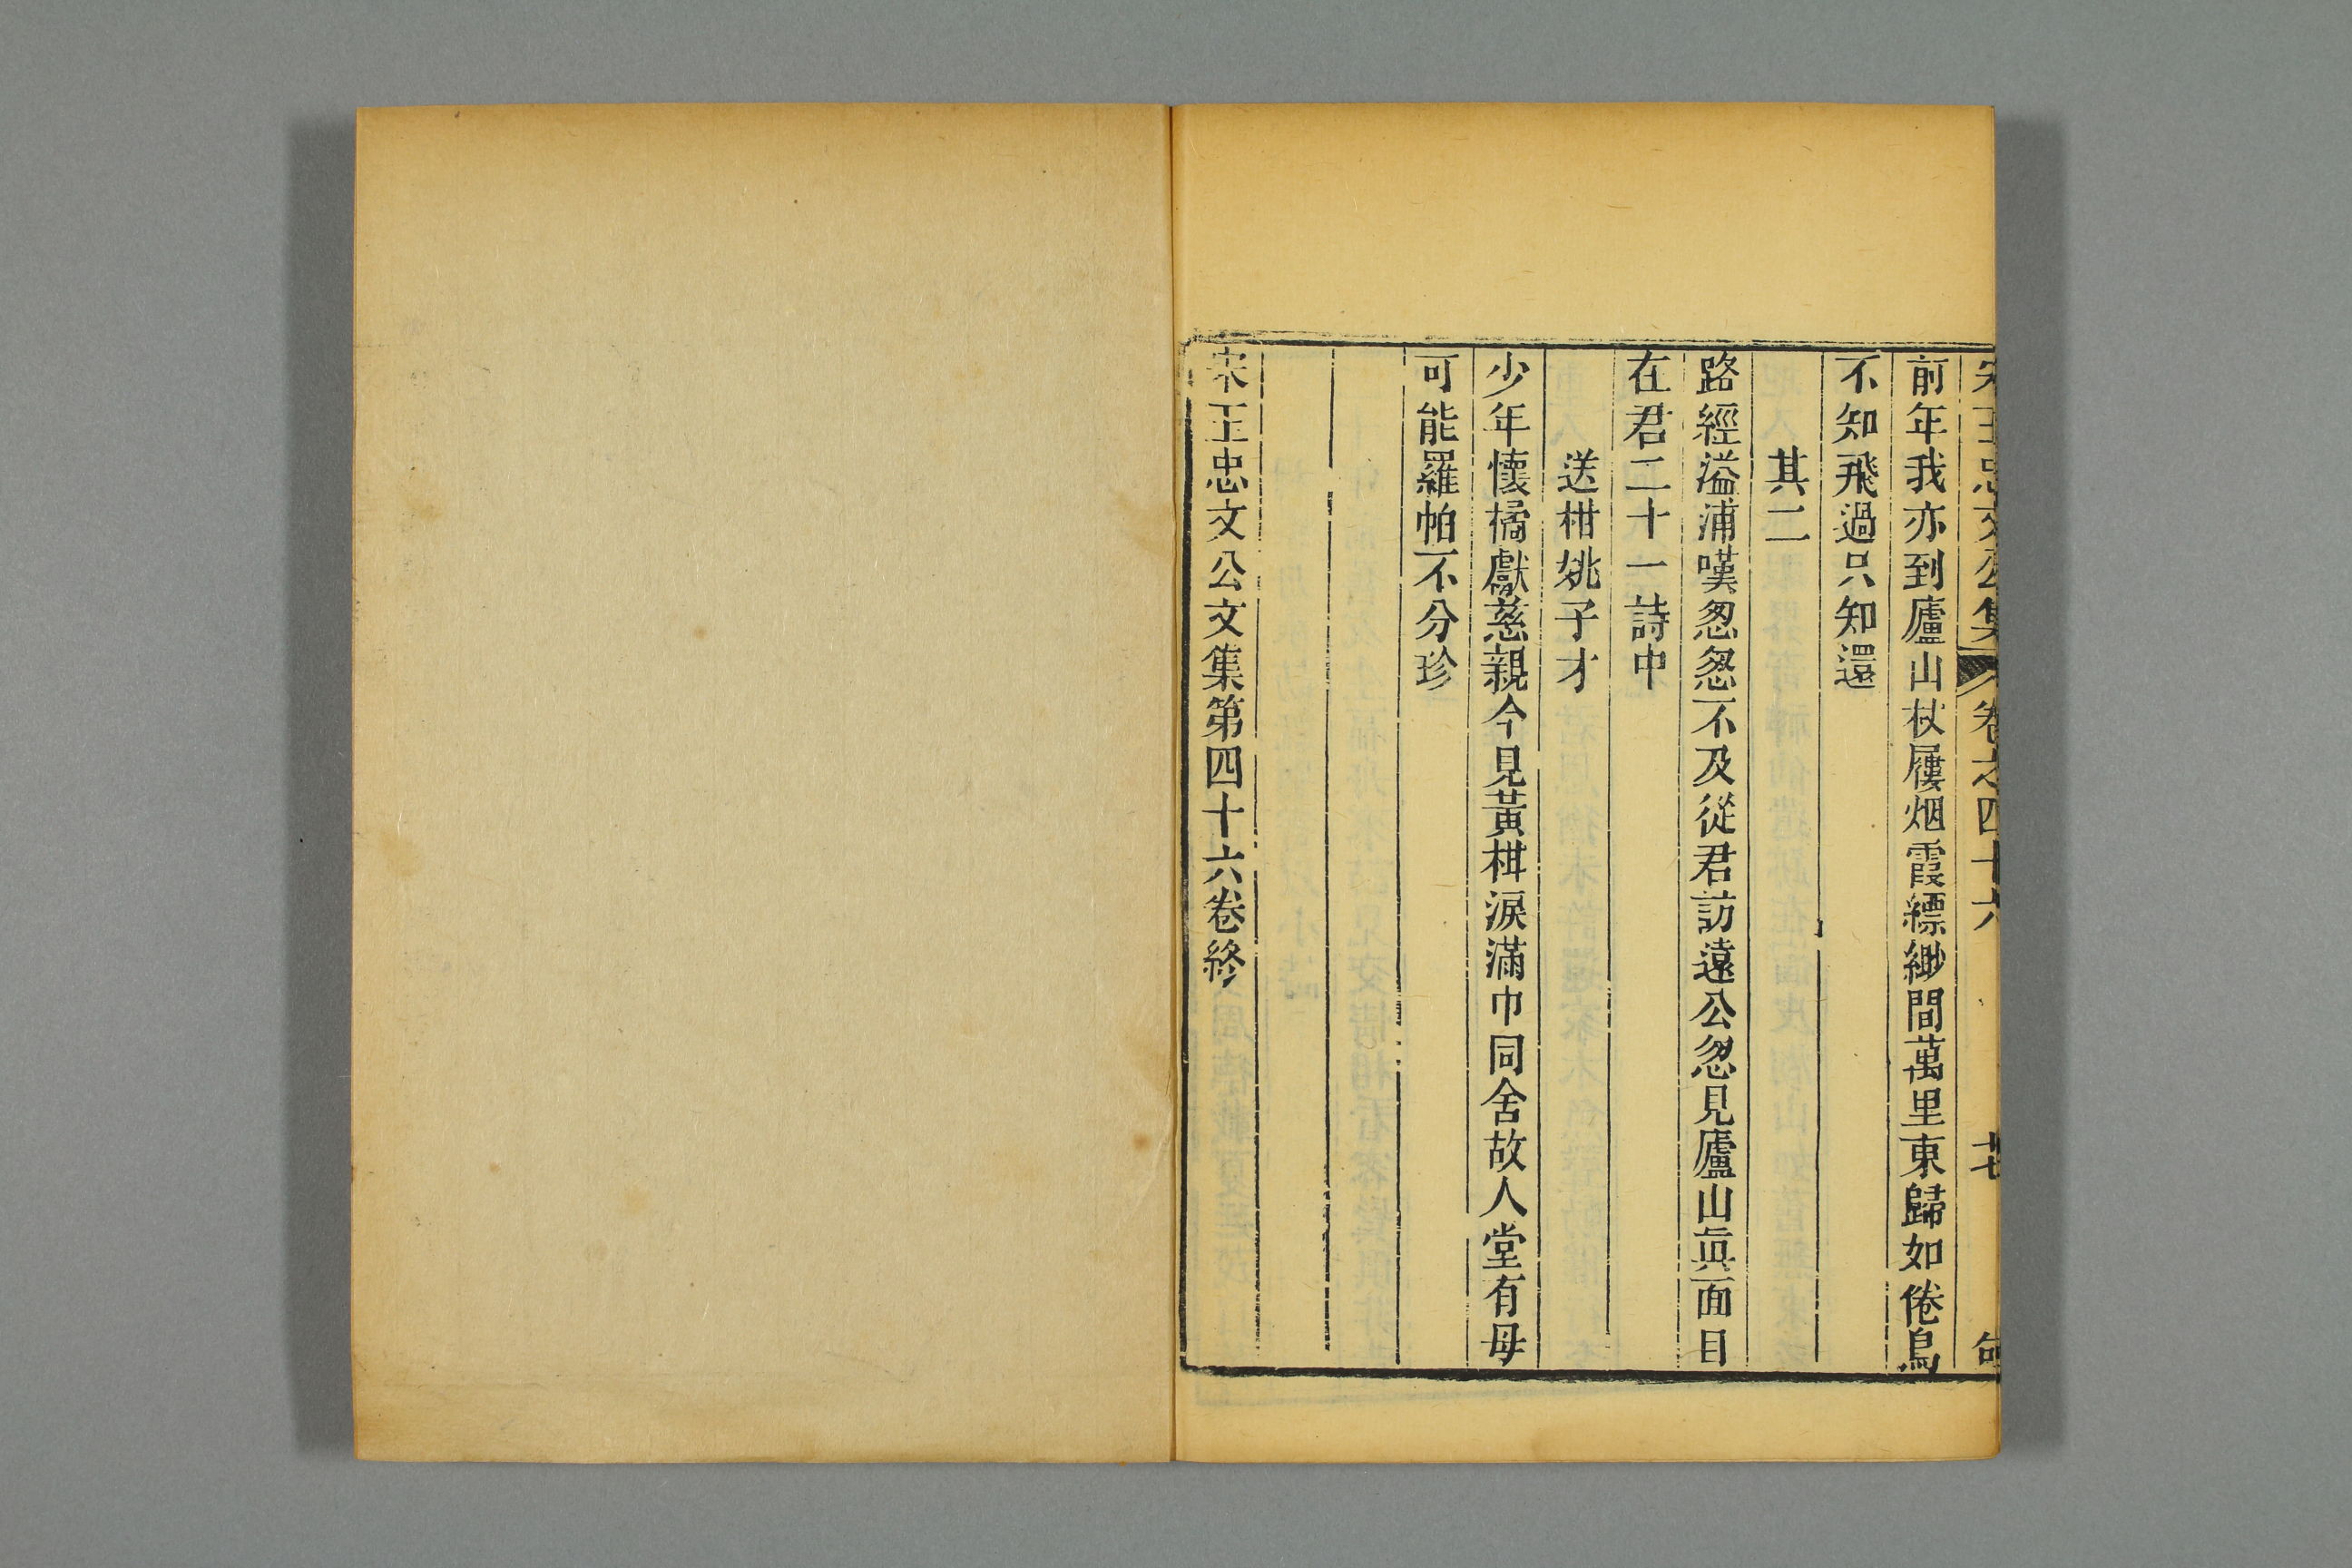 宋王忠文公集
卷之四十六
廿七
前年我亦到廬山杖屨烟霞縹緲間萬里東歸如倦鳥
不知飛過只知還
其二
路經溢浦嘆怱怱不及從君訪遠公忽見廬山眞面目
在君二十一詩中
送柑姚子才
少年懷橘獻慈親今見黃柑淚滿巾同舍故人堂有母
可能羅帕不分珍
宋王忠文公文集第四十六卷終